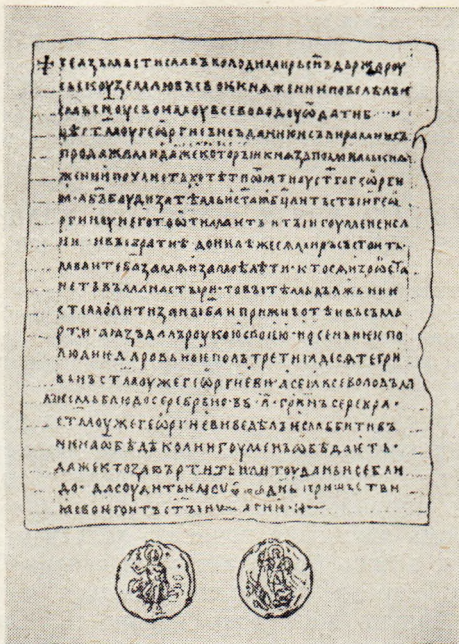 ✝ се азъ мьстиславъ володимирь сн҃ъ дьржа роу
сьскоу землю въ своѥ кнѧжениѥ повелѣлъ ѥ
смь сн҃оу своѥмоу всеволодоу ѿдати б
цѣ ст҃моу георгиеви съ данию и съ вирами и съ
продажами даже которыи кнѧзь по моѥмь кнѧ
жении почьнеть хотѣти ѿѧти оу ст҃го георги
ꙗ · а бъ҃ боуди за тѣмь и ст҃аꙗ бц҃а и тъ ст҃ыи ге
оргии оу него то ѿимаѥть · и ты игоумене иса
иѥ · и вы братиѣ · донелѣже сѧ миръ състоить ·
молите ба҃ за мѧ и за моѣ дѣти · кто сѧ изоста
неть въ манастыри · то вы тѣмь дължьни ѥ
сте молити за ны ба҃ и при животѣ и въ съмь
рти · а ꙗзъ далъ роукою своѥю · и осеньнеѥ по
людиѥ даровьноѥ полъ третиꙗ десѧте гри
вьнъ ст҃моу же георгиеви · а се ꙗ всеволодъ да
лъ ѥсмь блюдо серебрьно · въ · л҃ · грв҃нъ серебра ·
ст҃моу же георгиеви велѣлъ ѥсмь бити въ
нѥ на обѣдѣ коли игоуменъ обѣдаѥть ·
даже кто запъртить или тоу дань и се блю
до · да соудить ѥмоу бъ҃ въ дн҃ь пришьстви
ꙗ своѥго и тъ ст҃ыи георгии ·